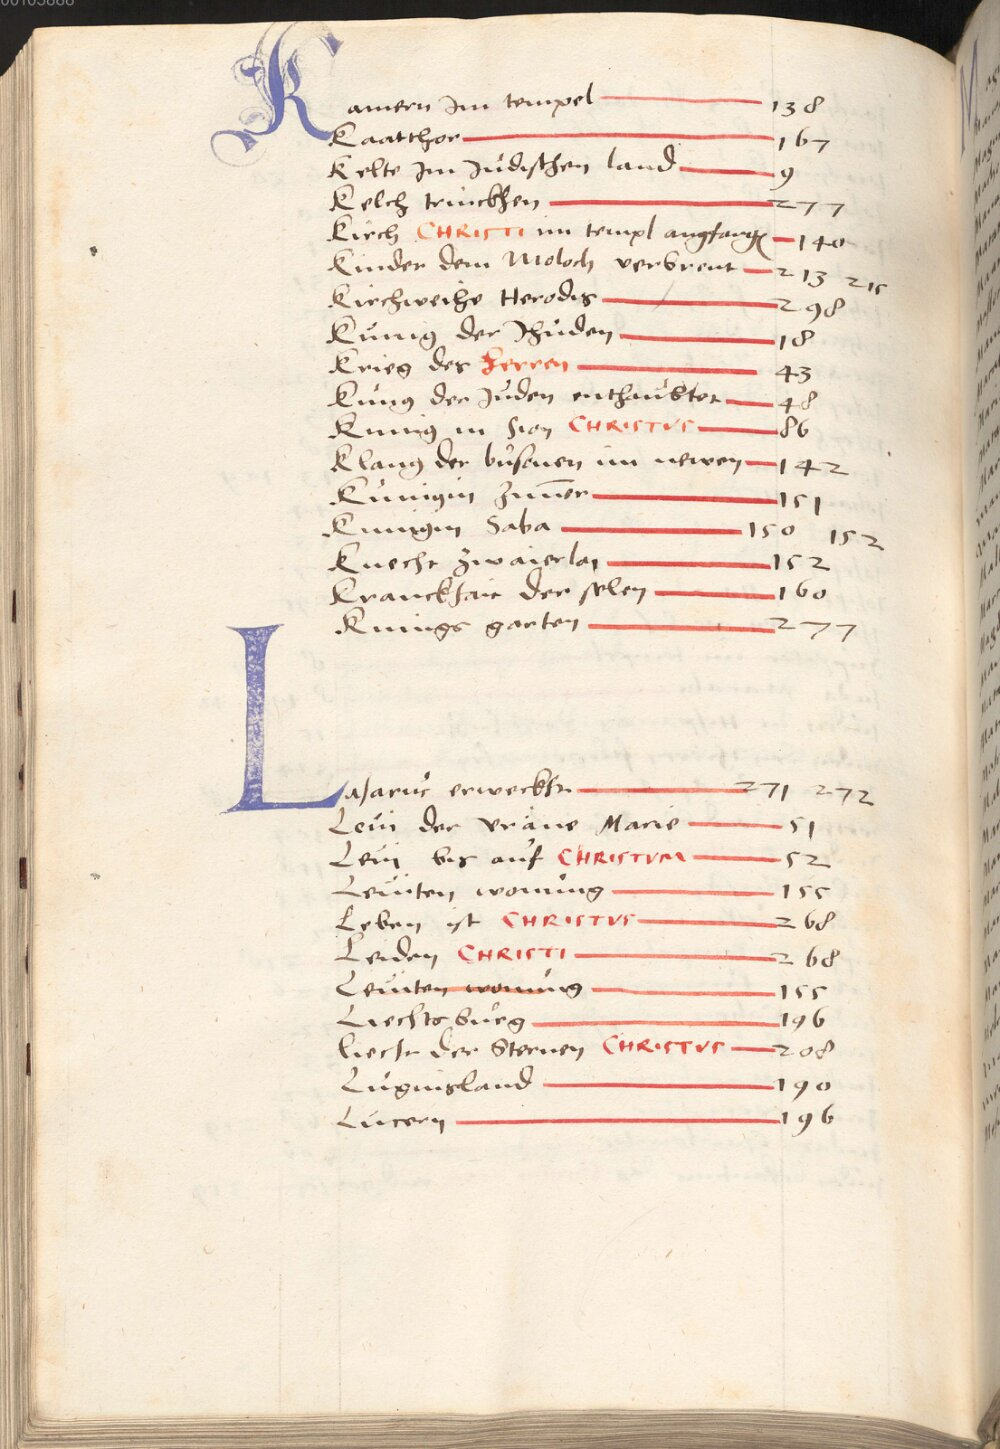 Kamern Im tempel 138
Kaatthor 167
Kelte Im Judischen land 9
Kelch trinckhen 277
Kirch CHRISTI im templ angfangen 140
Kinder dem Moloch verbrent 213 215
Kirchweihe Herodis 298
Künig der Jhüden 18
Krieg des Herren 43
Küng der Juden enthaubtet 48
Kunig in Sion CHRISTVS 86
Klang der busonen im newen 142
Künigin Zimer 151
Kunigin Saba 150 152
Knecht Zwaierlay 152
Kranckhait der selen 160
Kunigs garten 277
Lasarus erweckht 271 272
Levi der vräne Marie 51
Levi bis auf CHRISTVM 52
Leviten wonung 155
Leben ist CHRISTVS 268
Leiden CHRISTI 268
Leviten wonung 155
Liechtsburg 196
liecht der Sternen CHRISTVS 208
Luginsland 190
Lucern 196